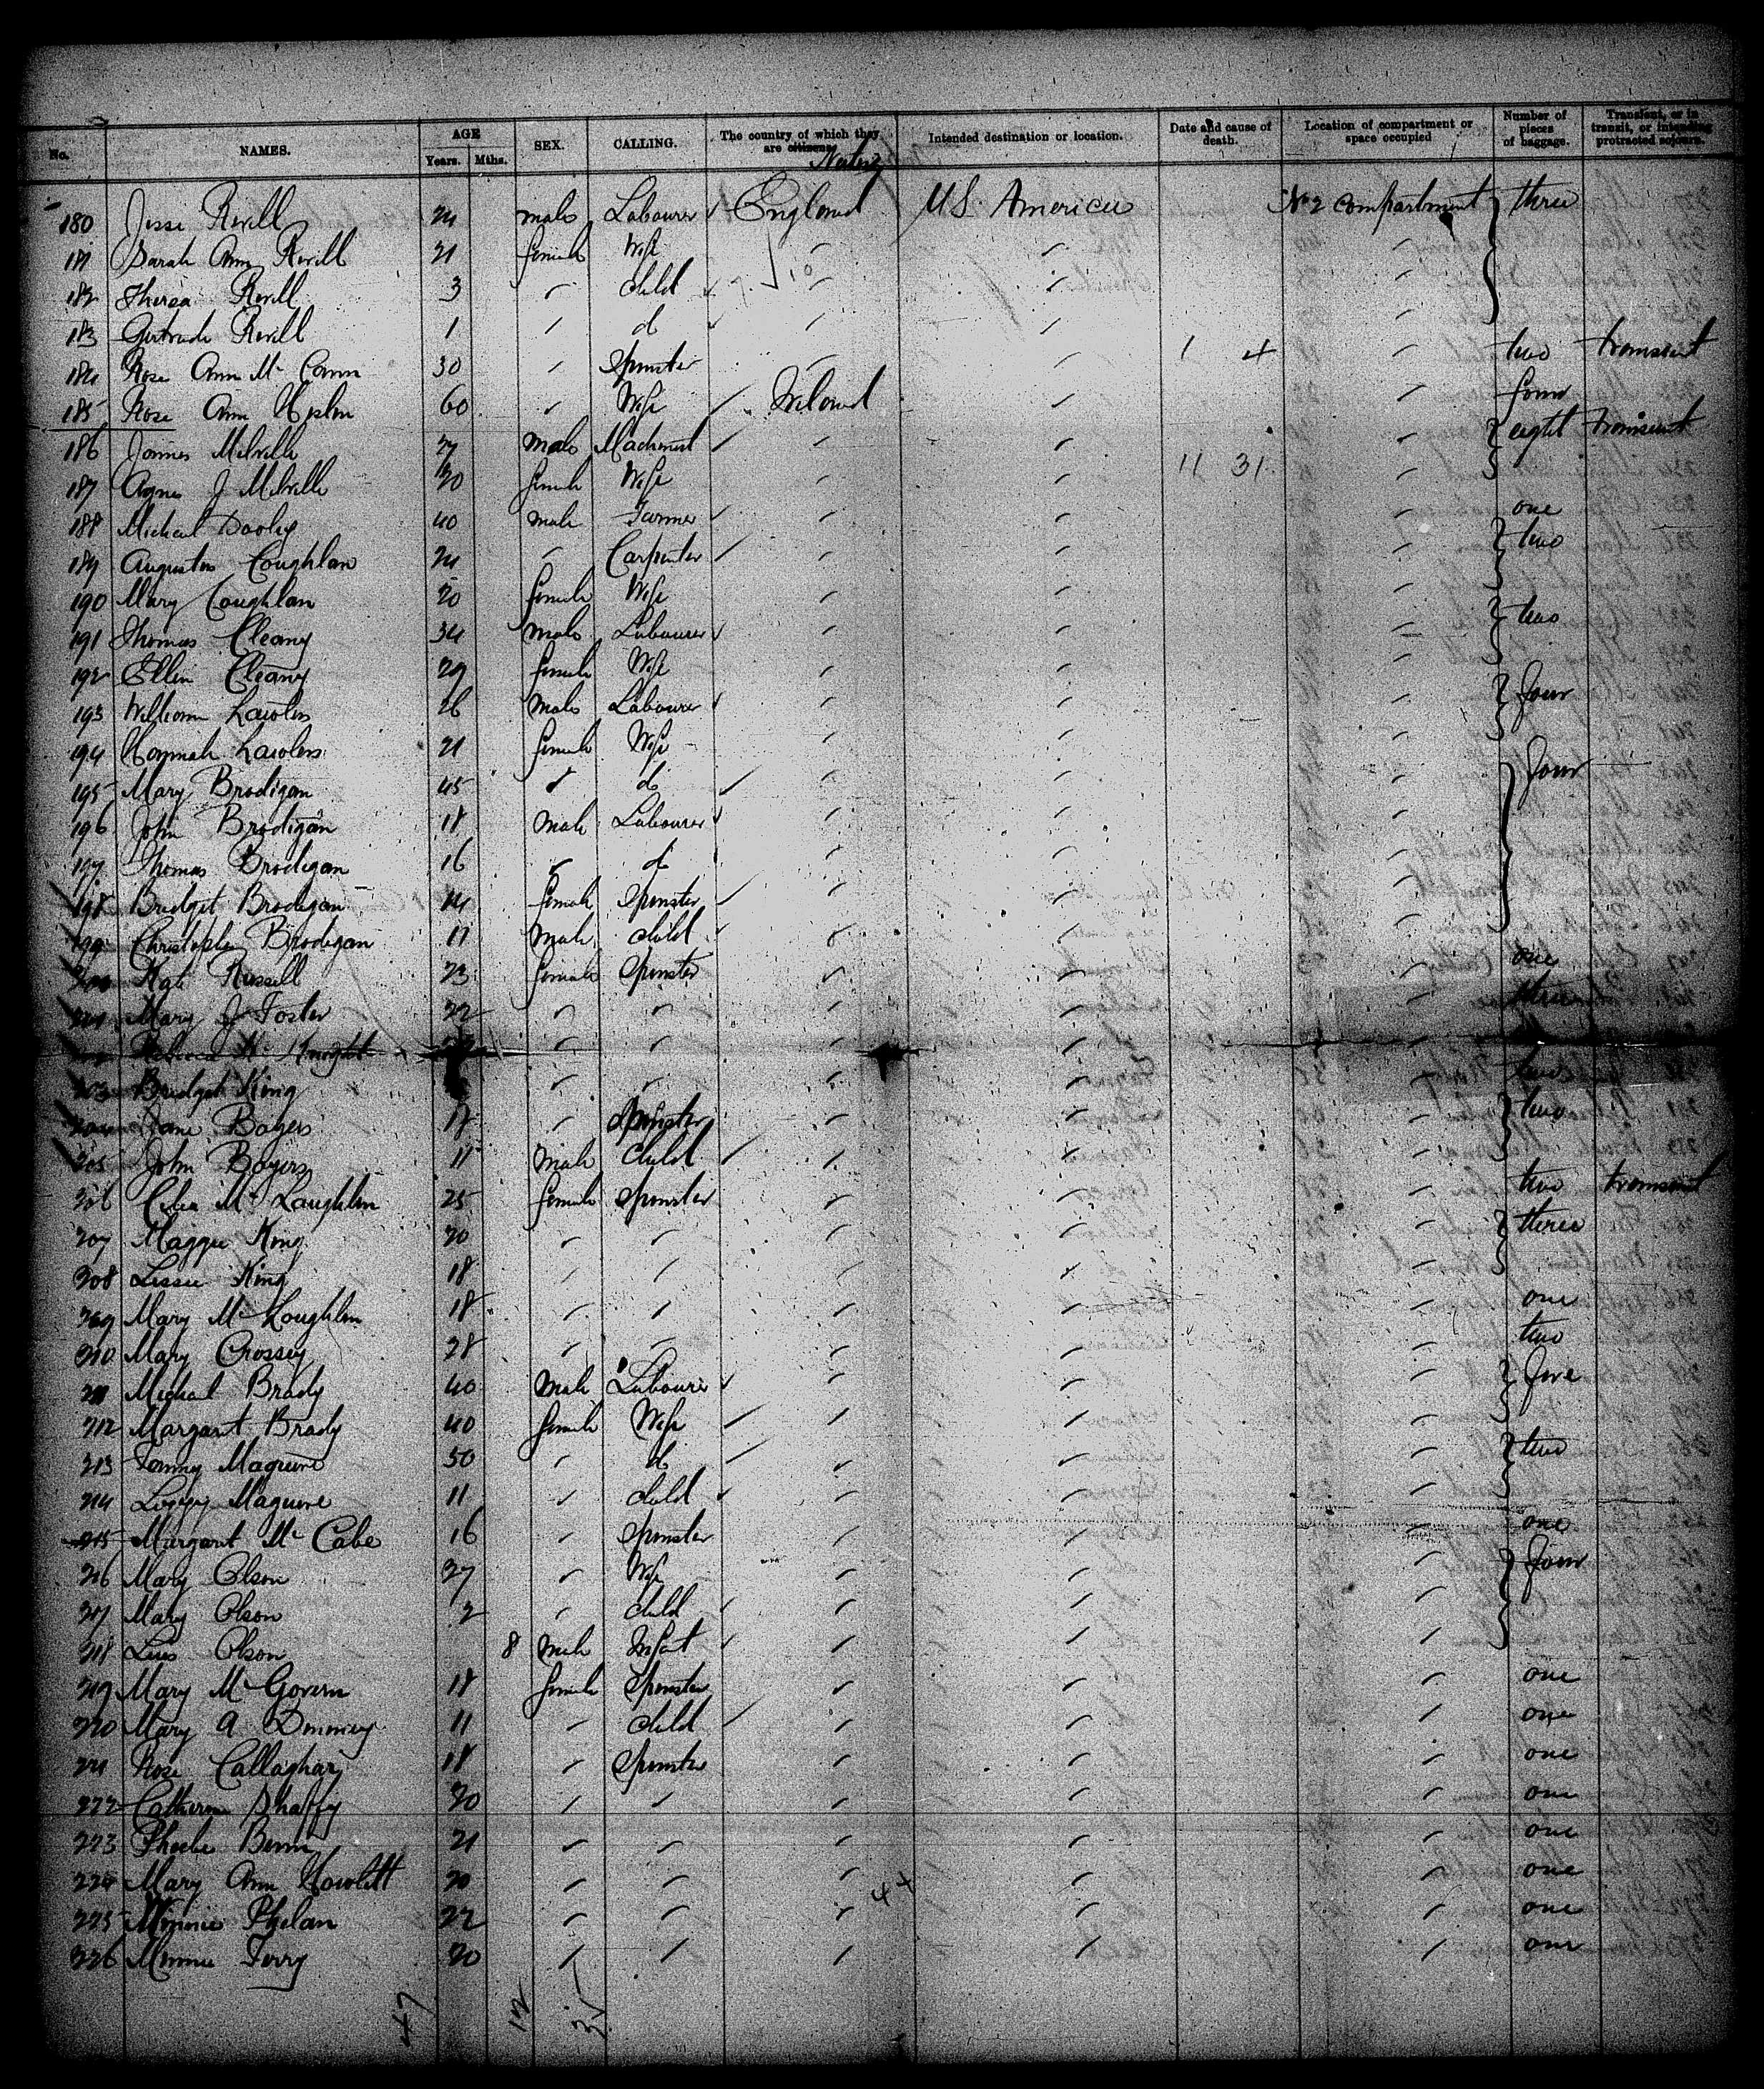 No. NAMES. AGE Years. Mths. SEX. CALLING. The country of which they are citizens. Intended destination or location. Date and cause of death. Location of compartment or space occupied Number of pieces of baggage. Transient, or in transit, or intending protracted sojourn.
180 Jesse Revill 24 male Labourer England U.S. America No 2 compartment three
181 Sarah Ann Revill 21 female Wife
182 Theresa Revill 3 child
183 Gertrude Revill 1 do
184 Rose Ann Mc Cann 30 Spinster 1 4 two transient
185 Rose Ann 60 Wife Ireland four
186 James Melville 27 male Machinist eight transient
187 Agnes J Melville 20 female Wife 11 31
188 Micheal Dooley 40 male Farmer one
189 Augustus Coughlan 24 Carpenter two
190 Mary Coughlan 20 female Wife
191 Thomas Cleany 34 male Labourer two
192 Ellin Cleany 29 female Wife
193 William Lawlers 26 male Labourer four
194 Hannah Lawlers 21 female Wife
195 Mary Brodigan 45 do four
196 John Brodigan 18 male Labourer
197 Thomas Brodigan 16 do
198 Bridget Brodigan 14 female Spinster
199 Christopher Brodigan 11 male child
Kate Russell 23 female Spinster one
Mary J Foster 22
Rebecca Mc Knight
203 Bridget King two
Jane Boyers 17 Spinster two
205 John Boyers 11 male child
206 Celia Mc Laughlin 25 female Spinster two transient
207 Maggie King 20 three
208 Lissie King 18
209 Mary Mc Loughlin 18 one
210 Mary Crossey 28 two
211 Micheal Brady 40 male Labourer five
212 Margaret Brady 40 female Wife
213 Fanny Maguire 50 do two
214 Maguire 11 child
215 Margaret Mc Cabe 16 Spinster one
216 Mary Olson 27 Wife four
217 Mary Olson 2 child
218 Olson 8 male Infant
219 Mary Mc Govern 18 female Spinster one
220 Mary A 11 child one
221 Rose Callaghan 18 Spinster one
222 Catherine Shaffy 20 one
223 Phoebe 21 one
224 Mary Ann Howlett 20 one
225 Minnie Phelan 22 one
226 Minnie Terry 20 one
47 12 35